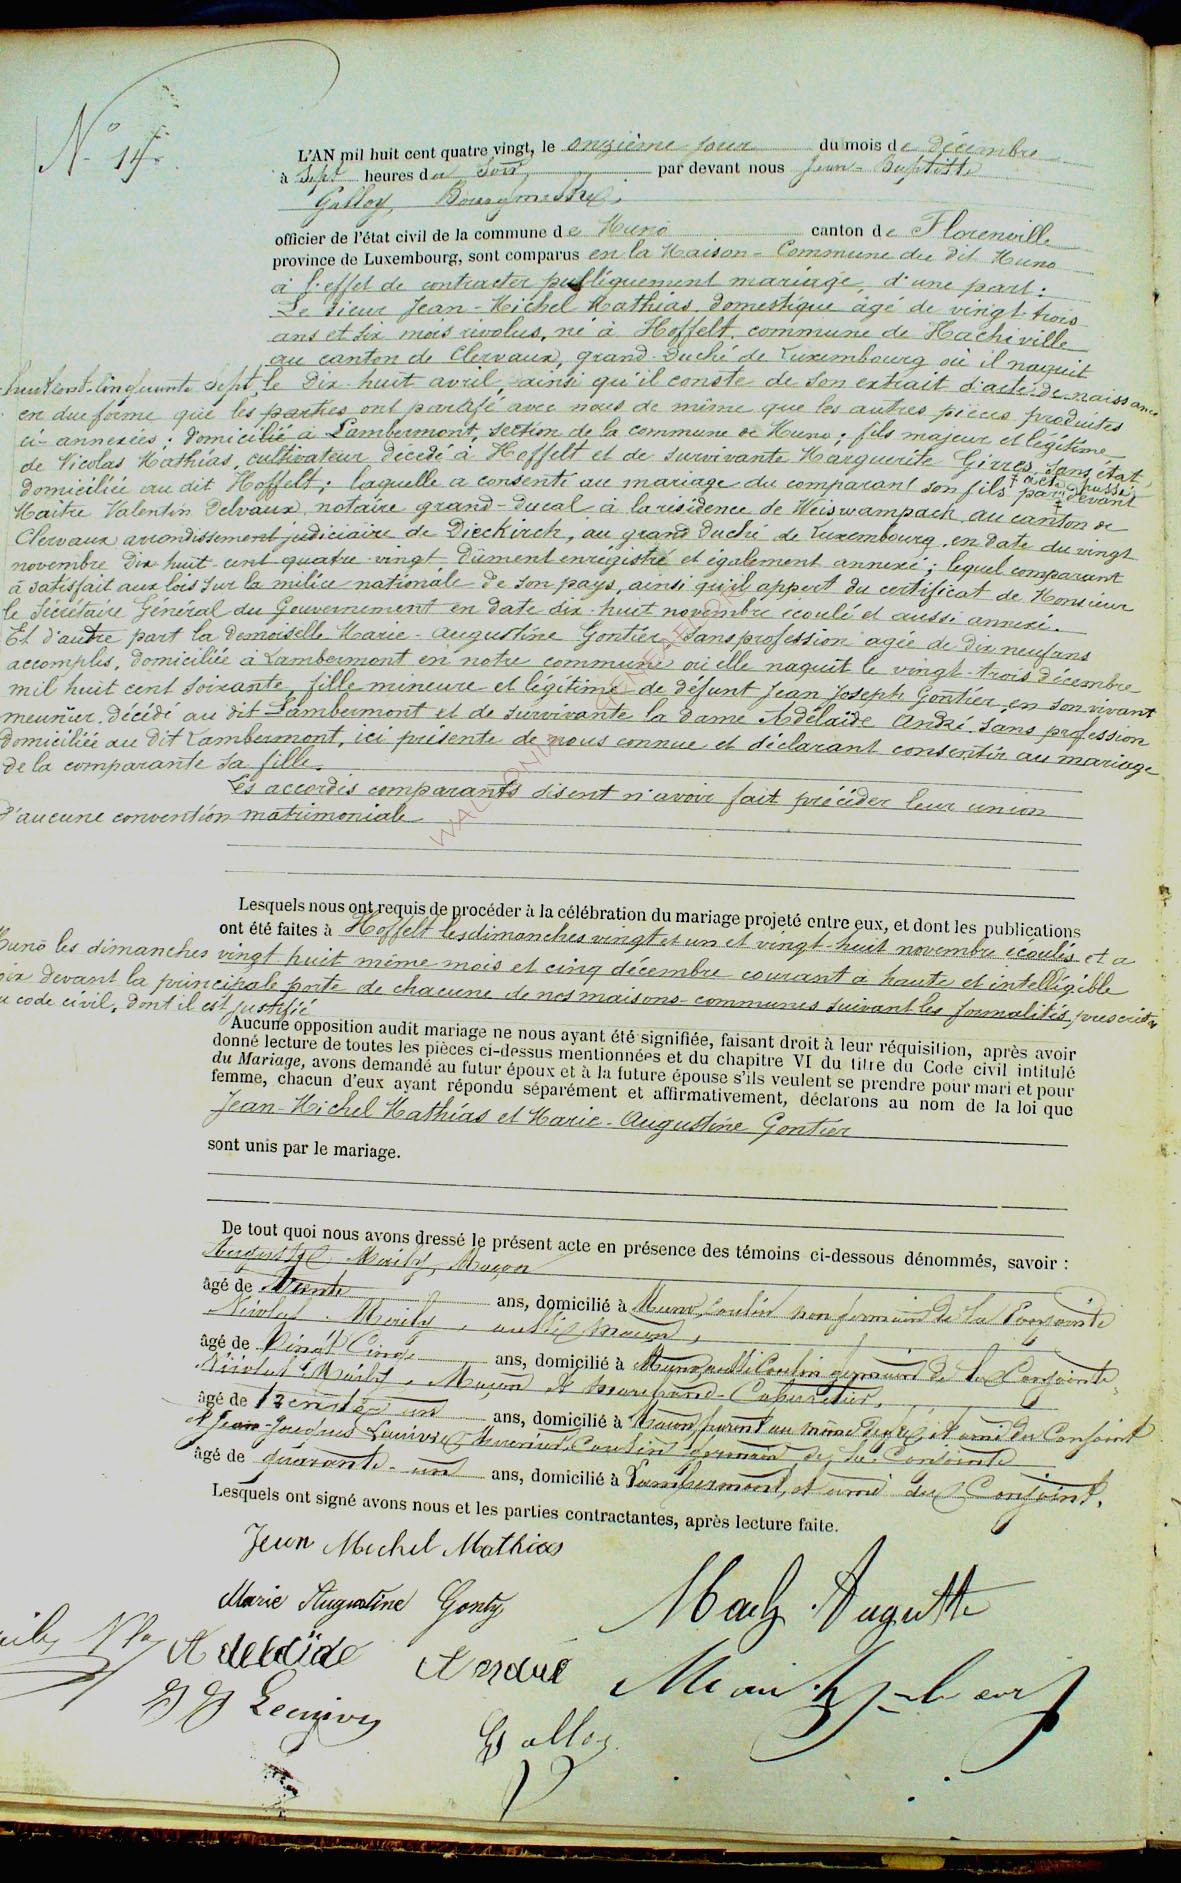 N° 14.
L'AN mil huit cent quatre vingt, le onzième jour du mois de Décembre
à Sept heures du Soir, par devant nous Jean-Baptiste
Galloy, Bourgmestre,
officier de l'état civil de la commune de Muno canton de Florenville
province de Luxembourg, sont comparus en la Maison-Commune du dit Muno
à l'effet de contracter publiquement mariage, d'une part:
Le sieur Jean-Michel Mathias, domestique âgé de vingt-trois
ans et six mois révolus, né à Hoffelt, commune de Hachiville
au canton de Clervaux, grand-duché de Luxembourg où il naquit
huit cent-cinquante sept, le dix-huit avril, ainsi qu'il conste de son extrait d'acte de naissance
en due forme que les parties ont parafé avec nous de même que les autres pièces produites
ci-annexées; domicilié à Lambermont, section de la commune de Muno; fils majeur et légitime
de Nicolas Mathias, cultivateur décédé à Hoffelt et de survivante Marguerite Girres, sans état,
domiciliée au dit Hoffelt; laquelle a consenti au mariage du comparant son fils par acte passé devant
Maître Valentin Delvaux, notaire grand-ducal à la résidence de Weiswampach, au canton de
Clervaux arrondissement judiciaire de Dieckirch, au grand Duché de Luxembourg, en date du vingt
novembre dix huit-cent quatre-vingt dûment enregistré et également annexé; lequel comparant
à satisfait aux lois sur la milice nationale de son pays, ainsi qu'il appert du certificat de Monsieur
le Sécrétaire Général du Gouvernement en date dix-huit novembre écoulé et aussi annexé.
Et d'autre part la demoiselle Marie-Augustine Gontier, sans profession agée de dix neuf ans
accomplis, domiciliée à Lambermont en notre commune où elle naquit le vingt-trois décembre
mil huit cent soixante, fille mineure et légitime de défunt Jean Joseph Gontier, en son vivant
meunier, décédé au dit Lambermont et de survivante la dame Adélaïde André, sans profession
domiciliée au dit Lambermont, ici présente de nous connue et déclarant consentir au mariage
de la comparante sa fille.
Les accordés comparants disent n'avoir fait précéder leur union
d'aucune convention matrimoniale
Lesquels nous ont requis de procéder à la célébration du mariage projeté entre eux, et dont les publications
ont été faites à Hoffelt les dimanches vingt et un et vingt-huit novembre écoulés et à
Muno les dimanches vingt huit même mois et cinq décembre courant à haute et intelligible
voix devant la principale porte de chacune de nos maisons-communes suivant les formalités prescrites
au code civil, dont il est justifié
Aucune opposition audit mariage ne nous ayant été signifiée, faisant droit à leur réquisition, après avoir
donné lecture de toutes les pièces ci-dessus mentionnées et du chapitre VI du titre du Code civil intitulé
du Mariage, avons demandé au futur époux et à la future épouse s'ils veulent se prendre pour mari et pour
femme, chacun d'eux ayant répondu séparément et affirmativement, déclarons au nom de la loi que
Jean-Michel Mathias et Marie-Augustine Gontier
sont unis par le mariage.
De tout quoi nous avons dressé le présent acte en présence des témoins ci-dessous dénommés, savoir :
Auguste Maily, Maçon
âgé de Trente ans, domicilié à Muno, Cousin non germain de la Conjointe
Nicolas Maily, aussi Maçon,
âgé de Vingt Cinq ans, domicilié à Muno, aussi Cousin germain de la Conjointe
Nicolas Maily, Maçon et Marchand-Cabaretier,
âgé de trente-un ans, domicilié à Muno, parent au même degré et ami du Conjoint
et Jean-Joseph Meunier, Cousin germain de la Conjointe
âgé de quarante-un ans, domicilié à Lambermont, et ami du Conjoint.
Lesquels ont signé avons nous et les parties contractantes, après lecture faite.
Jean Michel Mathias
Marie Augustine Gonty
Maily Auguste
Adelaïde André
Galloy
WALLONIA